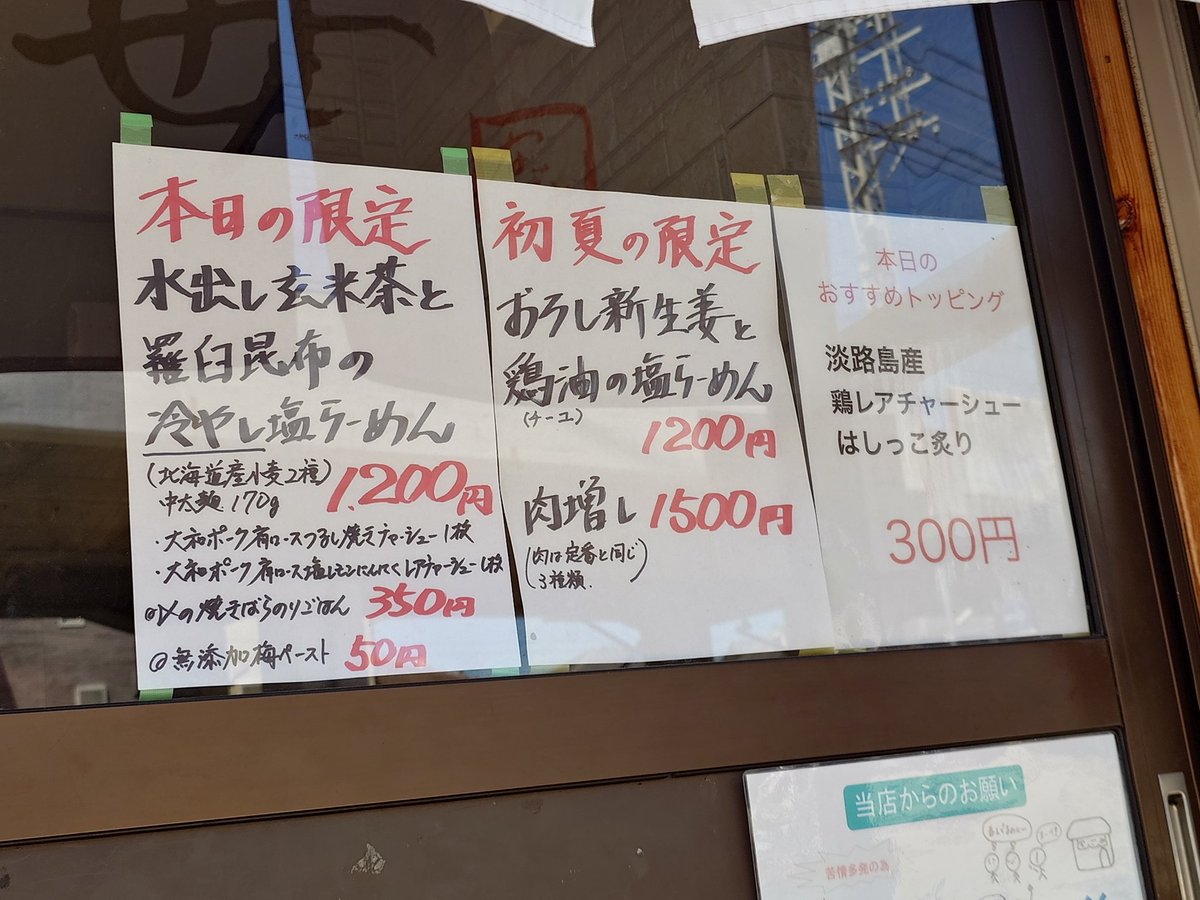 本日の限定
水出し玄米茶と
羅臼昆布の
冷やし塩らーめん
(北海道産小麦2種)
中太麺.170g
1.200円
・大和ポーク肩ロースつるし焼きチャーシュー1枚
・大和ポーク肩ロース塩レモンにんにくレアチャーシュー1枚
◎〆の焼きばらのりごはん 350円
◎無添加梅ペースト 50円
初夏の限定
おろし新生姜と
鶏油の塩らーめん
(チーユ)
1200円
肉増し 1500円
(肉は定番と同じ)
3種類.
本日の
おすすめトッピング
淡路島産
鶏レアチャーシュー
はしっこ炙り
300円
当店からのお願い
苦情多発の為